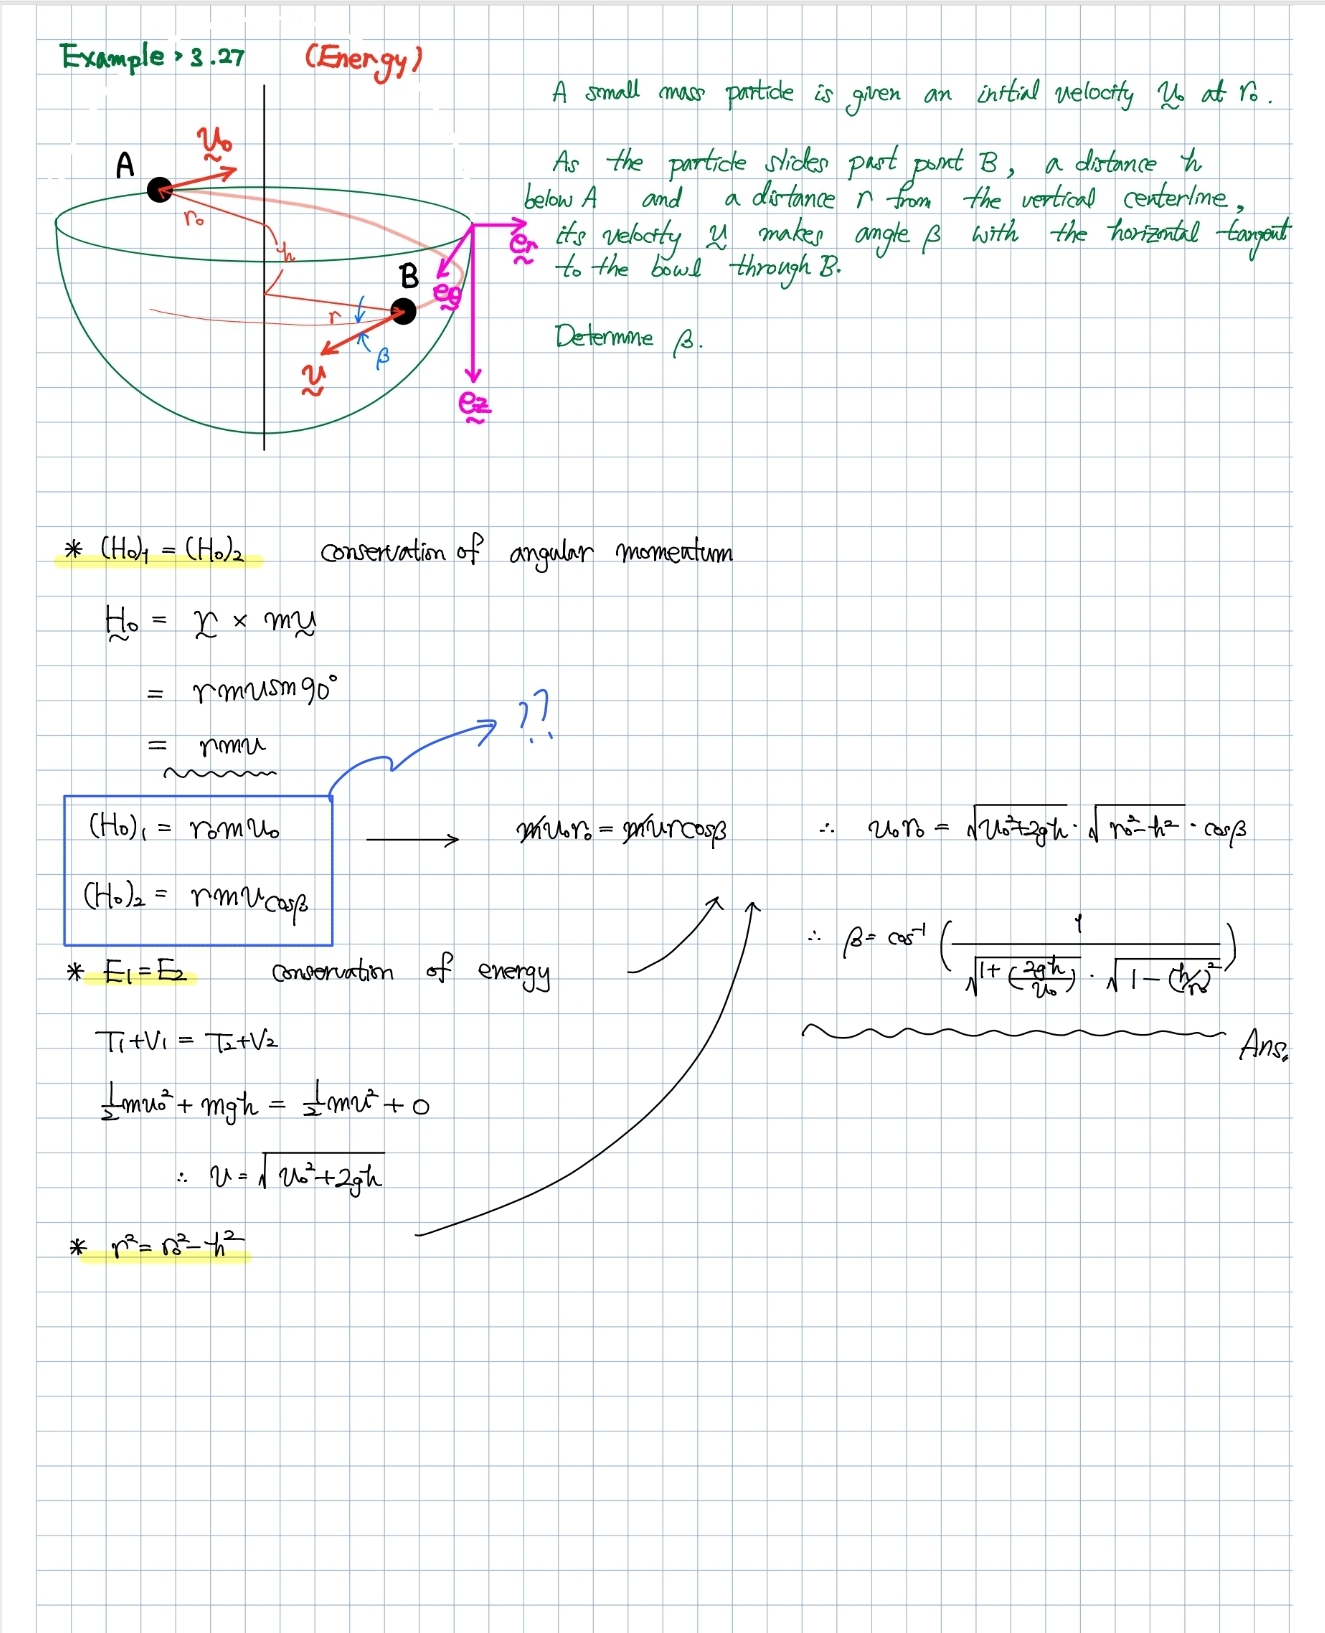 Example > 3.27 (Energy)
A small mass particle is given an initial velocity v₀ at r₀.
As the particle slides past point B, a distance h
below A and a distance r from the vertical centerline,
its velocity v makes angle β with the horizontal tangent
to the bowl through B.
Determine β.
A
v₀
r₀
h
B
r
v
β
er
eθ
ez
* (H₀)₁ = (H₀)₂ conservation of angular momentum
H₀ = r × mv
= rmv sin 90°
= rmv
??
(H₀)₁ = r₀mv₀
(H₀)₂ = rmv cosβ
→ mv₀r₀ = mvr cosβ
∴ v₀r₀ = √(v₀²+2gh) · √(r₀²-h²) · cosβ
∴ β = cos⁻¹ ( 1 / ( √(1+(2gh/v₀)) · √(1-(h/r₀)²) ) )
Ans.
* E₁=E₂ conservation of energy
T₁+V₁ = T₂+V₂
½mv₀² + mgh = ½mv² + 0
∴ v = √(v₀²+2gh)
* r² = r₀²-h²